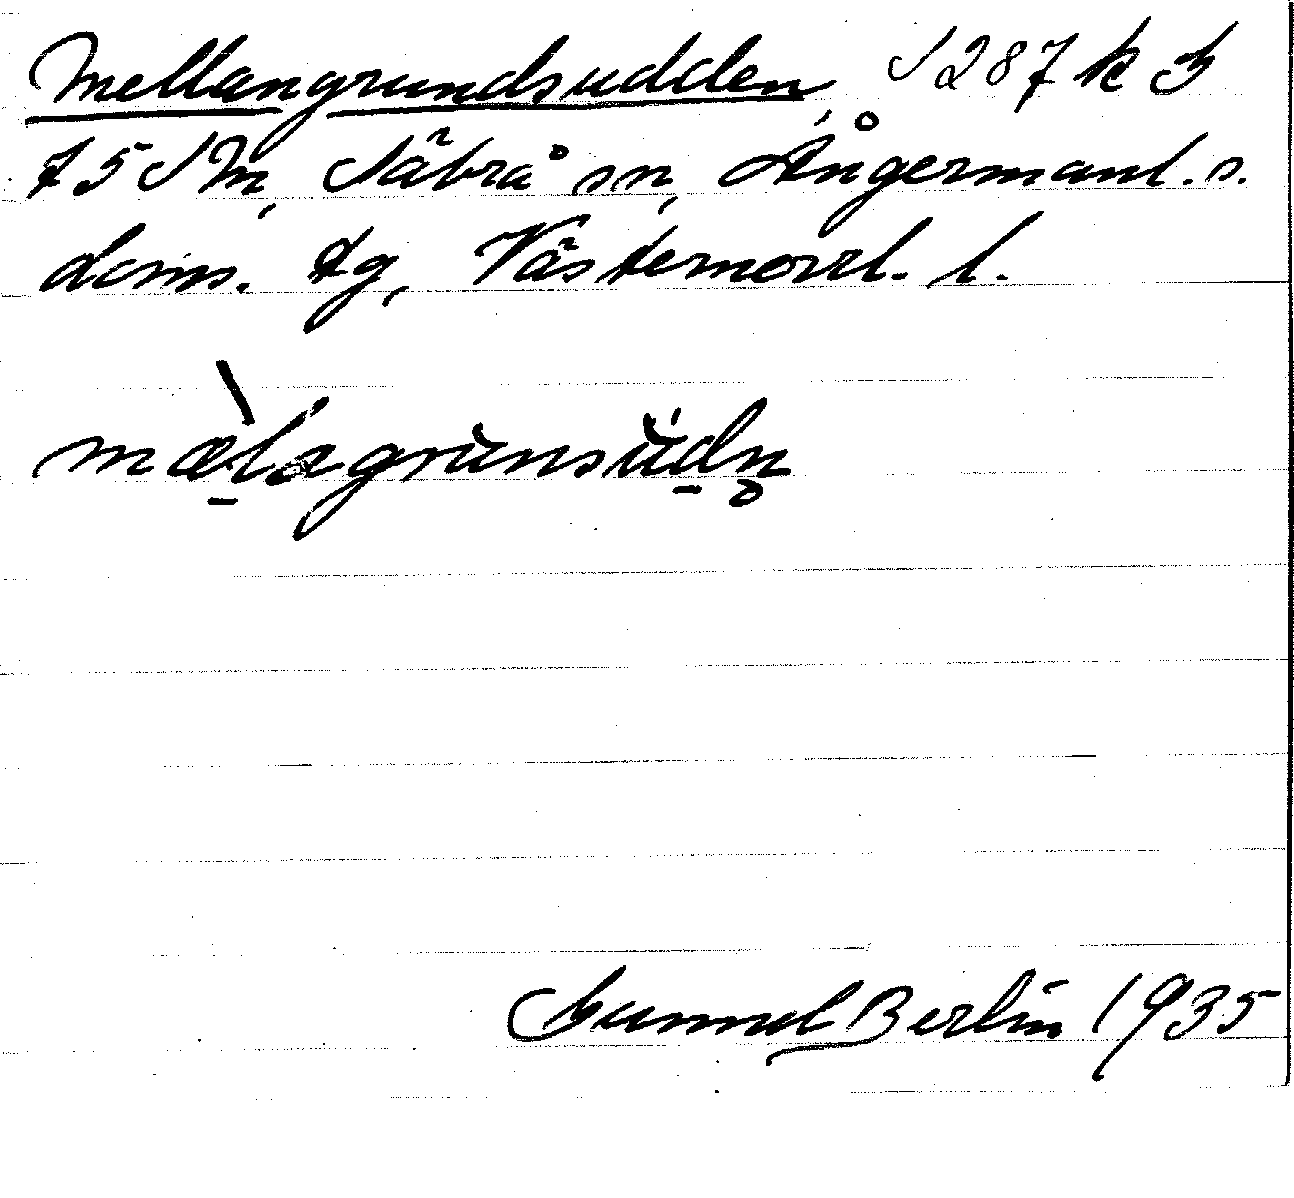 Mellangrundsudden, S 287 k 3
75 SM, Säbrå sn, Ångermanl. s.
doms. tg, Västernorrl. l.
mæ̀l̠agrunsúd̠n̥
Gunnel Berlin 1935